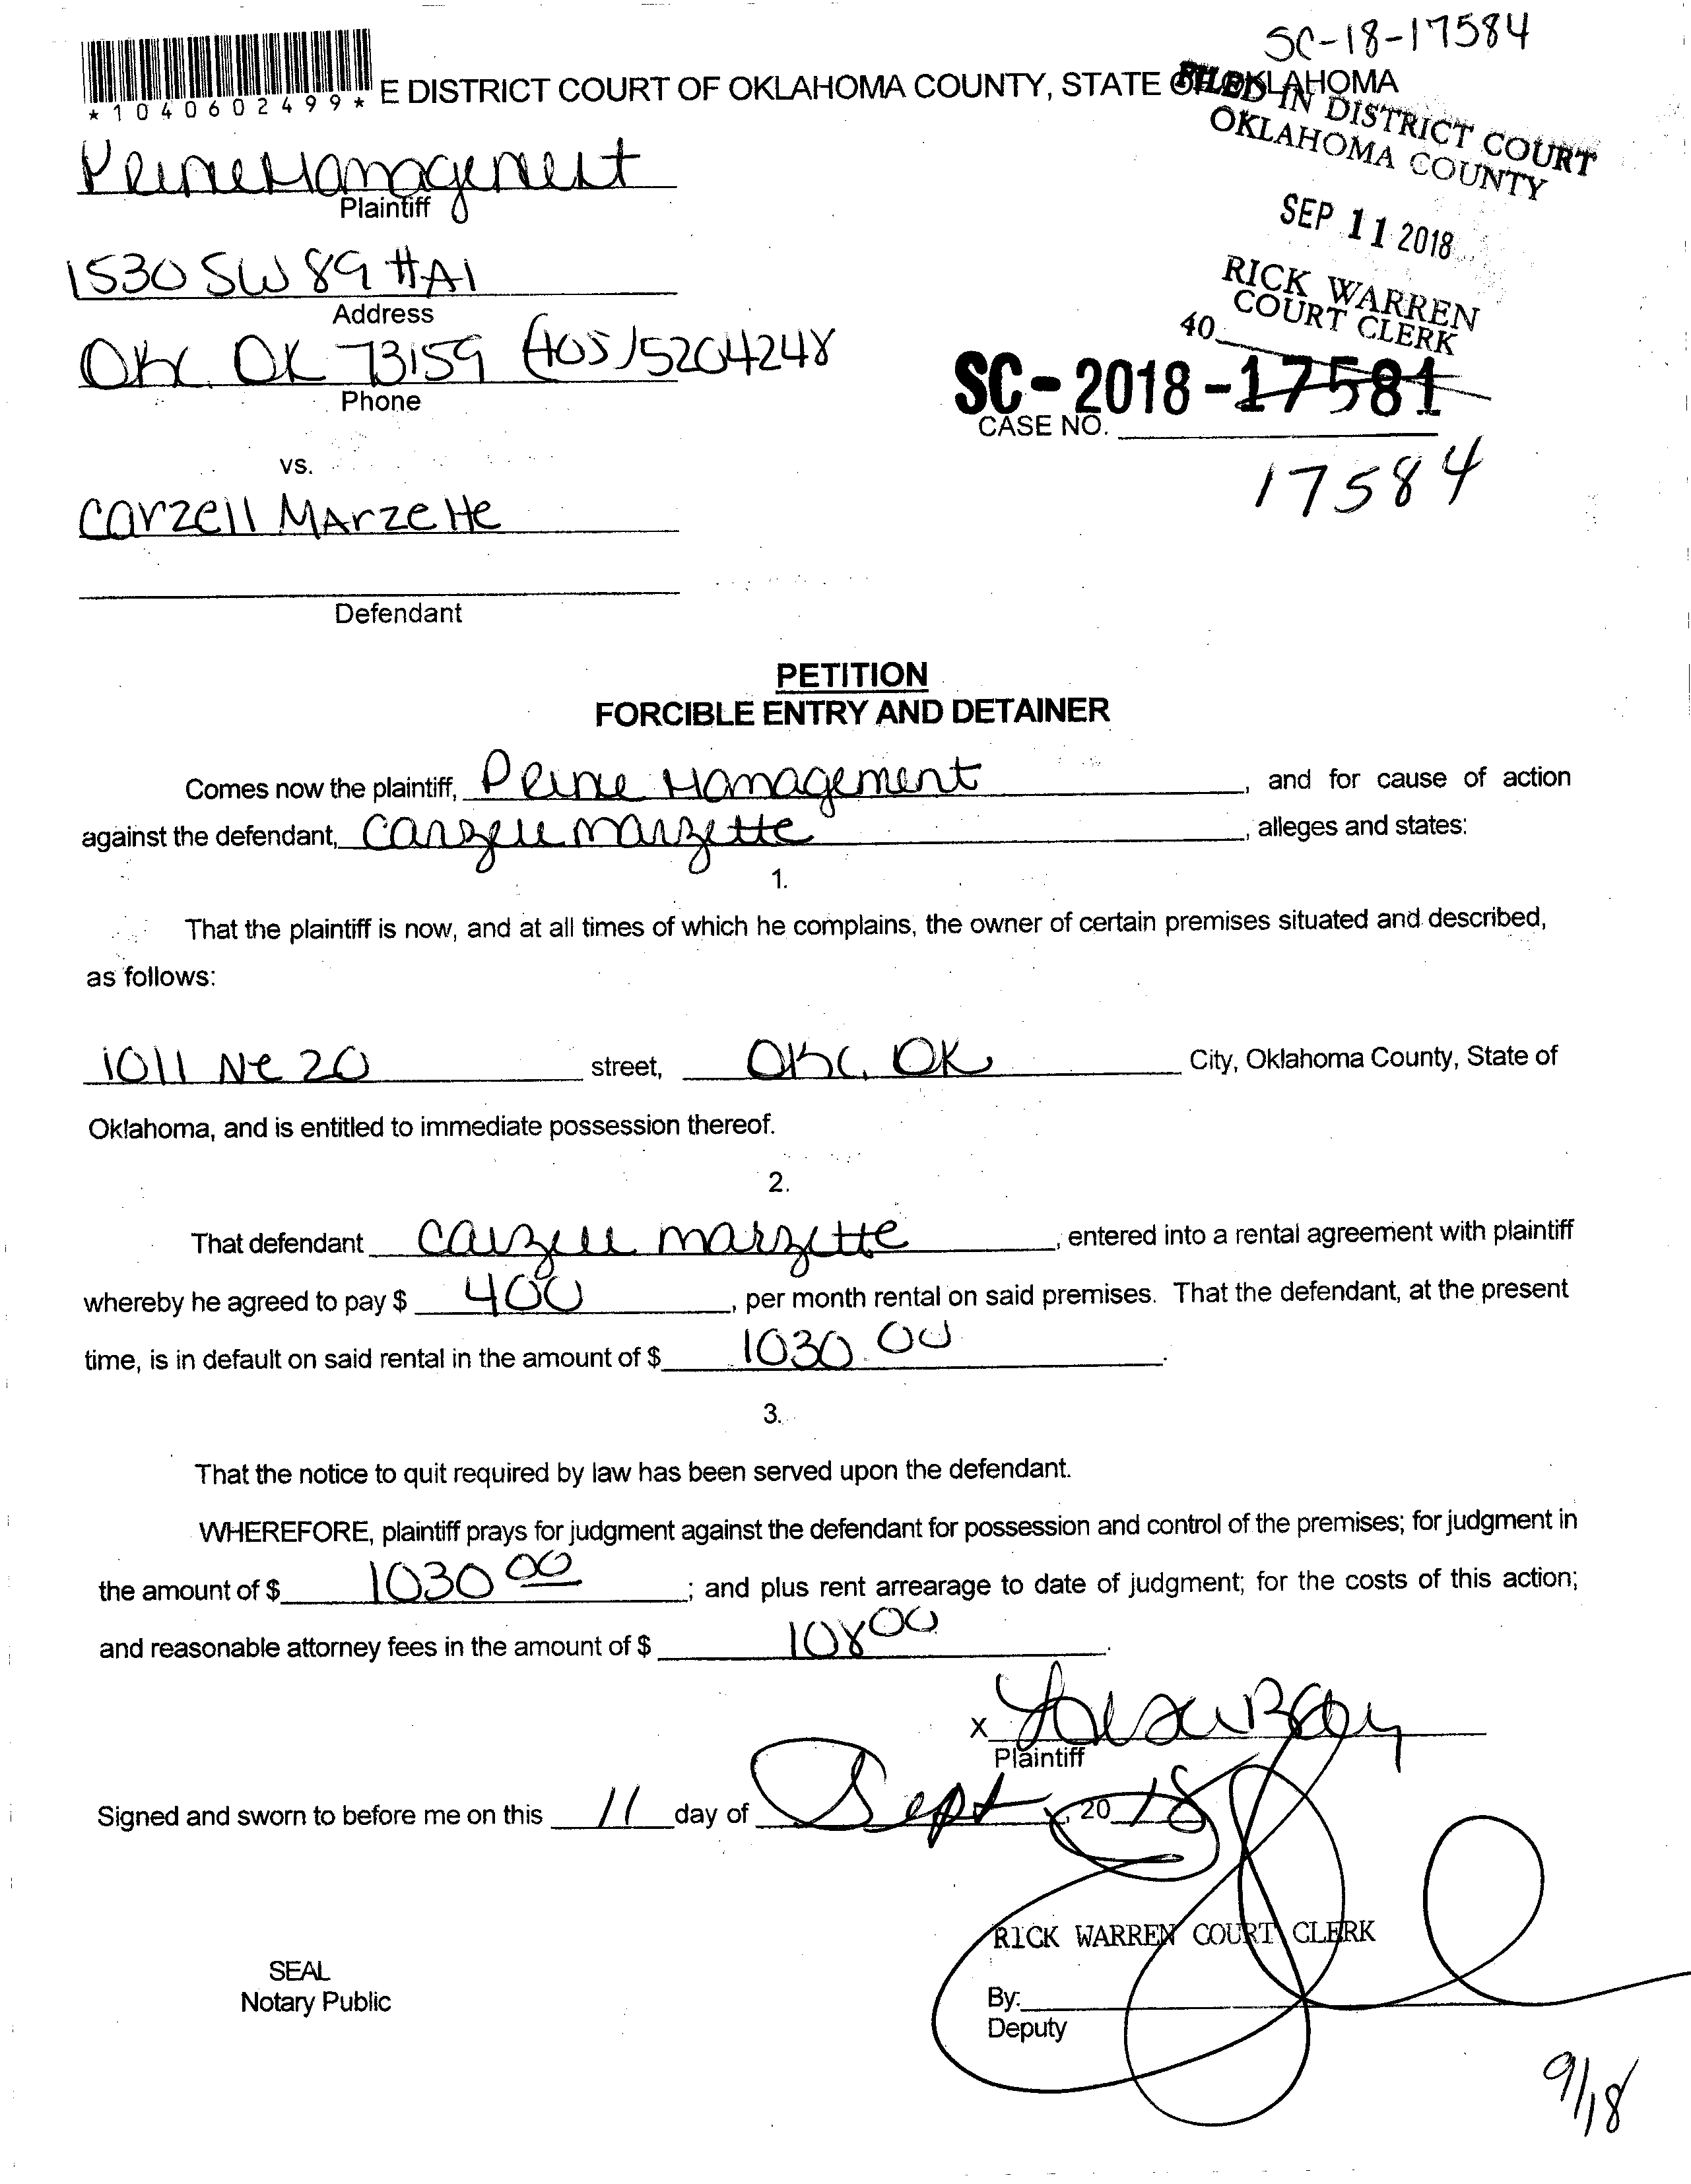 SC-18-17584
*1040602499* E DISTRICT COURT OF OKLAHOMA COUNTY, STATE OF OKLAHOMA
FILED IN DISTRICT COURT
OKLAHOMA COUNTY
Management
Plaintiff
SEP 11 2018
1530 SW 89 #A1
Address
RICK WARREN
COURT CLERK
40
OKC OK 73159 (405)5204248
Phone
SC-2018-17581
CASE NO.
17584
vs.
Carzell Marzette
Defendant
PETITION
FORCIBLE ENTRY AND DETAINER
Comes now the plaintiff, Management, and for cause of action
against the defendant, Carzell Marzette, alleges and states:
1.
That the plaintiff is now, and at all times of which he complains, the owner of certain premises situated and described,
as follows:
1011 NE 20 street, OKC, OK City, Oklahoma County, State of
Oklahoma, and is entitled to immediate possession thereof.
2.
That defendant Carzell Marzette, entered into a rental agreement with plaintiff
whereby he agreed to pay $ 400, per month rental on said premises. That the defendant, at the present
time, is in default on said rental in the amount of $ 1030.00.
3.
That the notice to quit required by law has been served upon the defendant.
WHEREFORE, plaintiff prays for judgment against the defendant for possession and control of the premises; for judgment in
the amount of $ 1030 00; and plus rent arrearage to date of judgment; for the costs of this action;
and reasonable attorney fees in the amount of $ 108 00.
X
Plaintiff
Signed and sworn to before me on this 11 day of Sept, 20 18
RICK WARREN COURT CLERK
SEAL
Notary Public
By:
Deputy
9/18